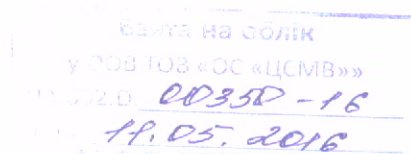 Взята на облік
у ООВ ТОВ «ОС «ЦСМВ»»
.002.D. 00350-16
11.05.2016